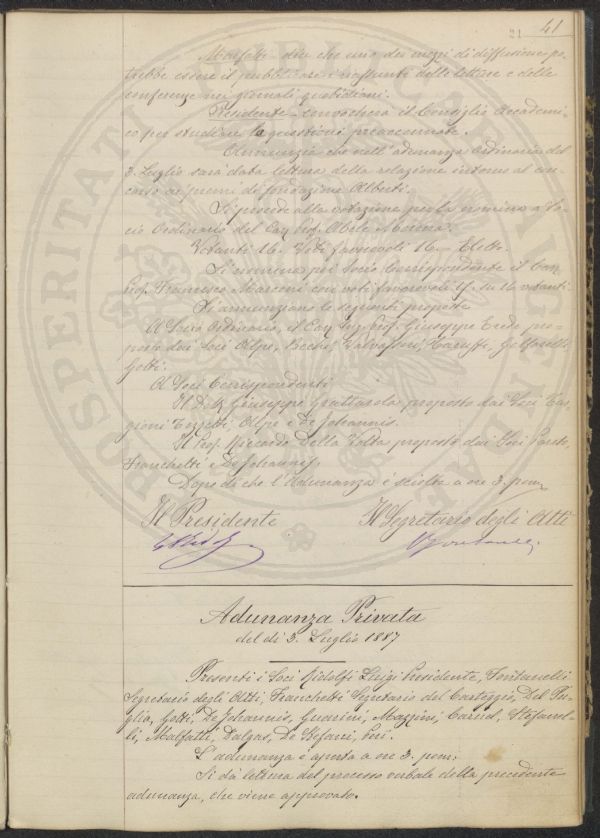 41
21
Malfatti dice che uno dei mezzi di diffusione po-
trebbe essere il pubblicare i riassunti delle letture e delle
conferenze nei giornali quotidiani.
Presidente - convocherà il Consiglio Accademi-
co per studiare la questioni preaccennate.
Annunzia che nell'adunanza ordinaria del
3. Luglio sarà data lettura della relazione intorno al con-
corso ai premi di fondazione Alberti.
Si procede alla votazione per la nomina a So-
cio Ordinario del Cav. Prof. Abele
Votanti 16. Voti favorevoli 16 - Eletto.
Si nomina poi Socio Corrispondente il Cav.
Prof. Francesco Marconi con voti favorevoli su 16 votanti.
Si annunziano le seguenti proposte
A Socio Ordinario, il Cav. Ing. Prof. Giuseppe pro-
posto dai Soci Alpe, Becchi, Caruffi,
Gotti.
A Soci Corrispondenti
Il D.r Giuseppe Grattarola proposto dai Soci Tar-
gioni Tozzetti, Alpe e De Johannis.
Il Prof. Riccardo Della Volta proposto dai Soci
Franchetti e De Johannis.
Dopo di che l'Adunanza è sciolta a ore 3. pom.
Il Presidente Il Segretario degli Atti
Adunanza Privata
del dì 3. Luglio 1887
Presenti i Soci Ridolfi Luigi Presidente, Fontanelli
Segretario degli Atti, Franchetti Segretario del Carteggio, Del Pu-
glia, Gotti, De Johannis, Guarini, Mazzini, Caruel, Stefanel-
li, Malfatti, Dalgas, De Stefani,
L'adunanza è aperta a ore 3. pom.
Si dà lettura del processo verbale della precedente
adunanza, che viene approvato.
PROSPERITATI PUBLICAE AUGENDAE